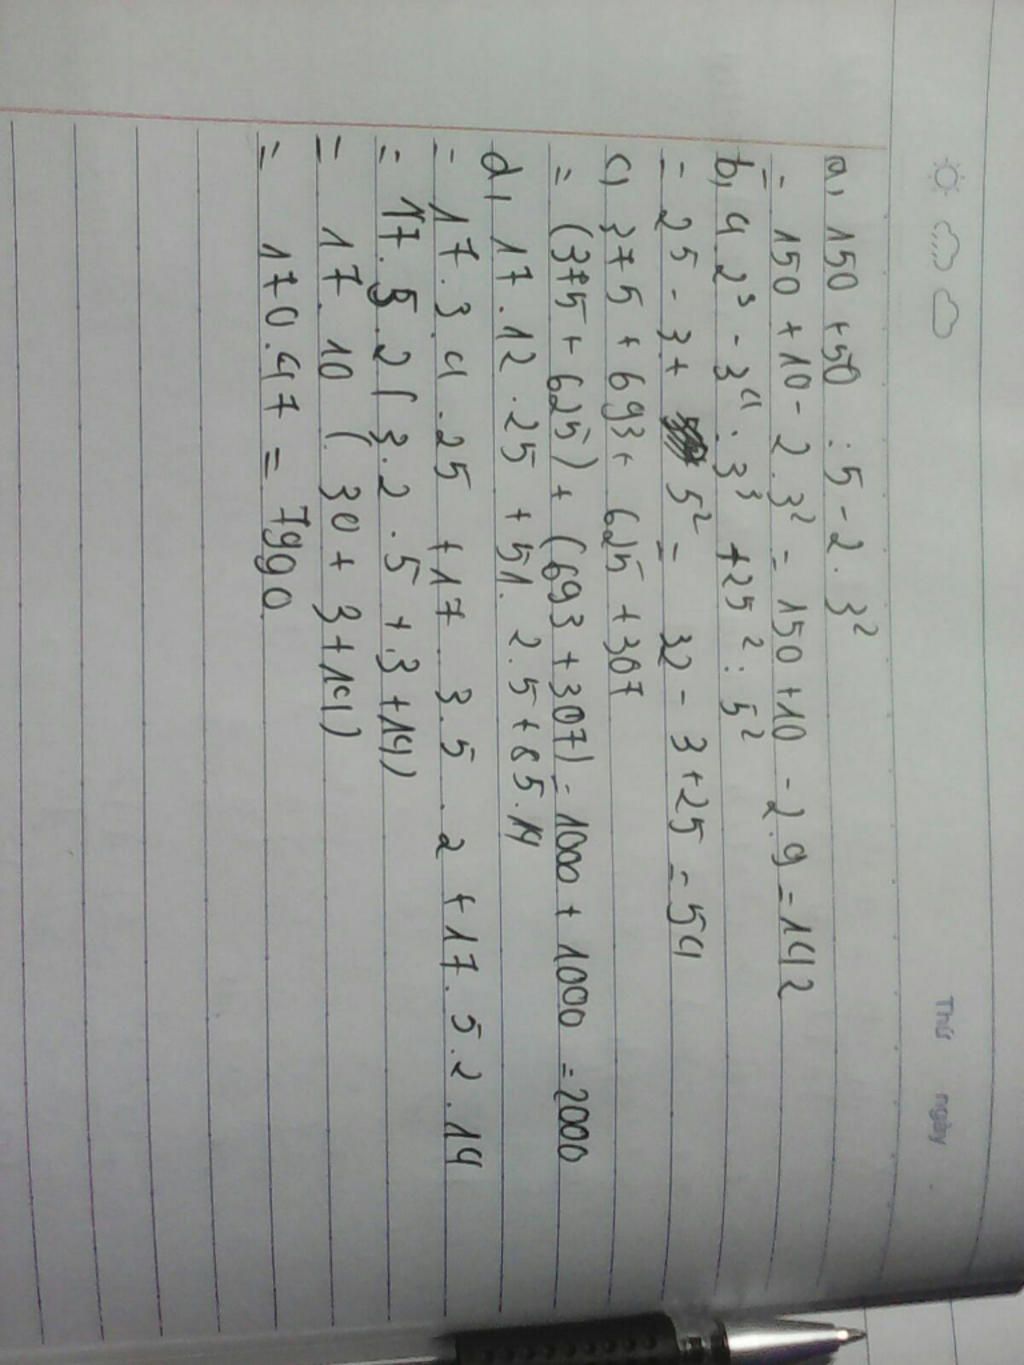 Thứ ngày
a, 150 + 50 : 5 - 2 . 3²
= 150 + 10 - 2 . 3² = 150 + 10 - 2 . 9 = 142
b, 4 . 2³ - 3⁴ : 3³ + 25² : 5²
= 2⁵ - 3 + 5² = 32 - 3 + 25 = 54
c, 375 + 693 + 625 + 307
= (375 + 625) + (693 + 307) = 1000 + 1000 = 2000
d, 17 . 12 . 25 + 51 . 2 . 5 + 85 . 14
= 17 . 3 . 4 . 25 + 17 3 . 5 . 2 + 17 . 5 . 2 . 14
= 17 . 5 . 2 ( 3 . 2 . 5 + 3 + 14)
= 17 . 10 ( 30 + 3 + 14)
= 170 . 47 = 7990